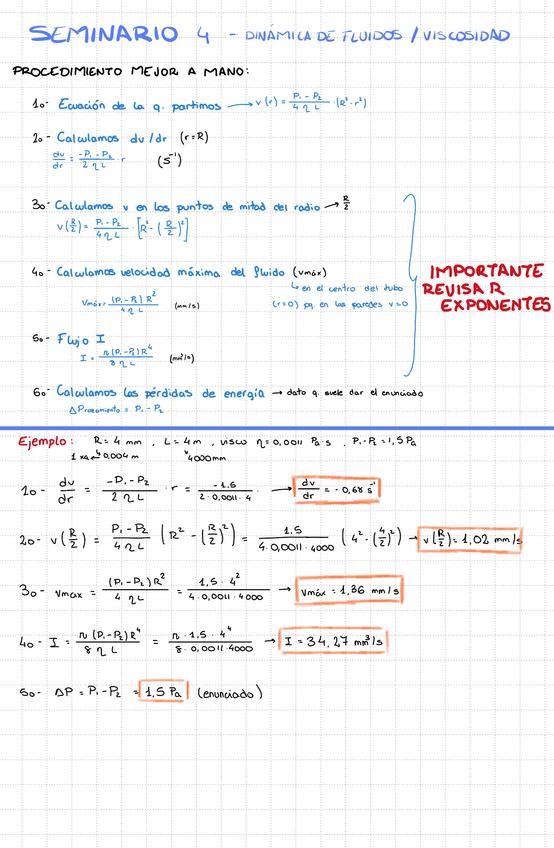 SEMINARIO 4 - DINÁMICA DE FLUIDOS / VISCOSIDAD
PROCEDIMIENTO MEJOR A MANO:
1o- Ecuación de la q. partimos → v(r) = P₁ - P₂ / 4 η L · (R² - r²)
2o- Calculamos dv/dr (r=R)
dv/dr = -P₁ - P₂ / 2 η L · r (s⁻¹)
3o- Calculamos v en los puntos de mitad del radio → R/2
v(R/2) = P₁ - P₂ / 4 η L · [R² - (R/2)²]
4o- Calculamos velocidad máxima del fluido (vmáx)
↳ en el centro del tubo
Vmáx = (P₁ - P₂) R² / 4 η L (mm/s) (r=0) pq. en las paredes v=0
IMPORTANTE
REVISAR
EXPONENTES
5o- Flujo I
I = π (P₁ - P₂) R⁴ / 8 η L (mm³/s)
6o- Calculamos las pérdidas de energía → dato q. suele dar el enunciado
ΔP rozamiento = P₁ - P₂
Ejemplo: R = 4 mm , L = 4 m , visco η = 0,0011 Pa·s , P₁ - P₂ = 1,5 Pa
0,004 m 4000 mm
1o- dv/dr = -P₁ - P₂ / 2 η L · r = -1.5 / 2·0,0011·4 → dv/dr = -0,68 s⁻¹
2o- v(R/2) = P₁ - P₂ / 4 η L (R² - (R/2)²) = 1.5 / 4·0,0011·4000 (4² - (4/2)²) → v(R/2) = 1,02 mm/s
3o- vmax = (P₁ - P₂) R² / 4 η L = 1,5 · 4² / 4·0,0011·4000 → vmáx = 1,36 mm/s
4o- I = π (P₁ - P₂) R⁴ / 8 η L = π · 1.5 · 4⁴ / 8·0,0011·4000 → I = 34,27 mm³/s
5o- ΔP = P₁ - P₂ = 1,5 Pa (enunciado)